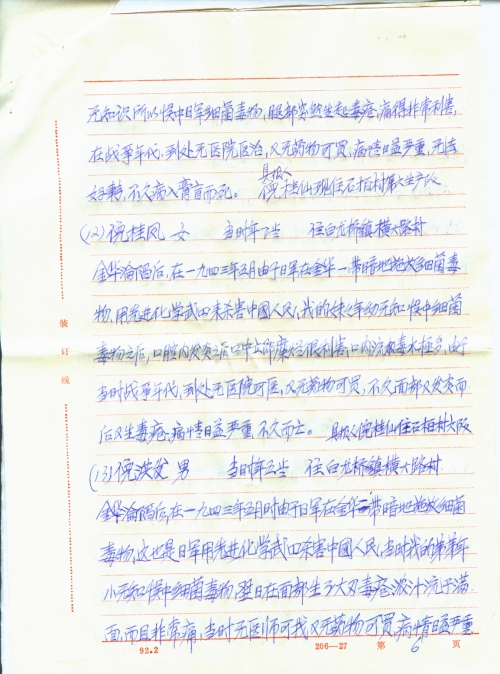 无知识所以误中日军细菌毒物,腿部突然生起毒疮,病得非常利害,
在战争年代,到处无医院医治,又无药物可买,病情日益严重,无法
好转,不久病入膏盲而死。 具报人倪桂仙现住石柏村第六生产队
(12)倪桂凤 女 当时年7岁 住白龙桥镇横大路村
金华沦陷后,在一九四三年五月由于日军在金华一带暗地施放细菌毒
物,用先进化学武四杀害中国人民,我的妹妹年幼无知误中细菌
毒物之后,口腔内发炎 糜烂很利害,口内流出毒水极多,由于
当时战争年代,到处无医院可医,又无药物可买,不久面部又发炎而
后又生毒疮,病情日益严重,不久而亡。 具报人倪桂仙住石柏村六队
(13)倪洪发 男 当时年三岁 住白龙桥镇横大路村
金华沦陷后,在一九四三年五月时由于日军在金华一带暗地施放细菌
毒物,这也是日军用先进化学武四杀害中国人民,当时我的弟弟年
小无知误中细菌毒物,翌日在面部生了大刃毒疮,浓汁流于满
面,而且非常痛,当时无医师可找,又无药物可买,病情日益严重
装订线
92.2 206—27 第 6 页